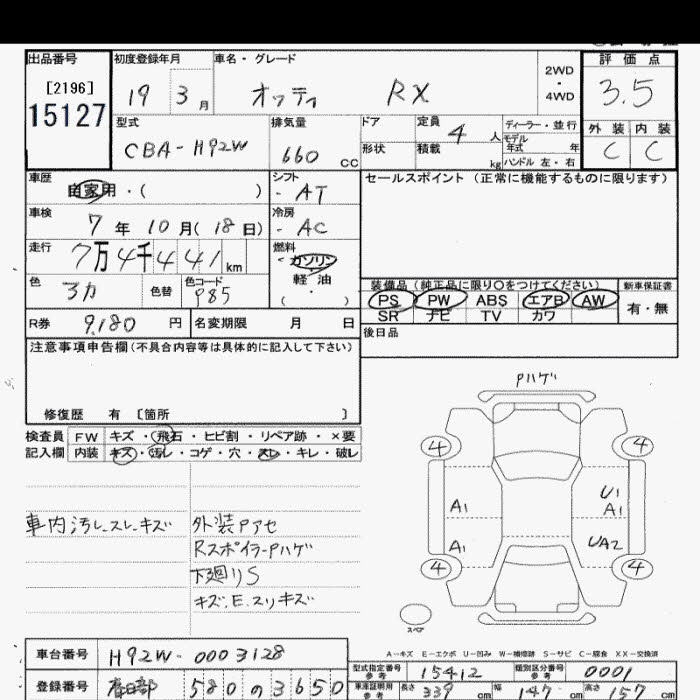 出品番号 初度登録年月 車名・グレード 2WD ・ 4WD 評価点
[2196]
15127
19 3月 オッティ RX 3.5
型式 排気量 ドア 定員 4人 ディーラー・並行 外装 内装
CBA-H92W 660 CC 形状 積載 kg モデル年式 年 ハンドル 左・右 C C
車歴 自家用・( ) シフト - AT セールスポイント(正常に機能するものに限ります)
車検 7年10月(18日) 冷房 - AC
走行 7万4千441km 燃料 ガソリン 軽油 ・( )
色 色替 色コード P85
装備品(純正品に限り○をつけてください) 新車保証書
PS PW ABS エアB AW 有・無
SR ナビ TV カワ
R券 9,180円 名変期限 月 日 後日品
注意事項申告欄(不具合内容等は具体的に記入して下さい)
修復歴 有 〔箇所 〕
Pハゲ
検査員 FW キズ・飛石・ヒビ割・リペア跡・×要
記入欄 内装 キズ・汚レ・コゲ・穴・スレ・キレ・破レ
4 4
A1 U1
A1
A1 UA2
4 4
車内汚レスレキズ 外装Pアセ
RスポイラーPハゲ
下廻りS
キズ.E.スリキズ
スペア
A-キズ E-エクボ U-凹み W-補修跡 S-サビ C-腐食 XX-交換済
車台番号 H92W-0003128
型式指定番号 参考 15412 類別区分番号 参考 0001
登録番号 春日部 580 の 3650
車庫証明用 参考 長さ 339cm 幅 147cm 高さ cm